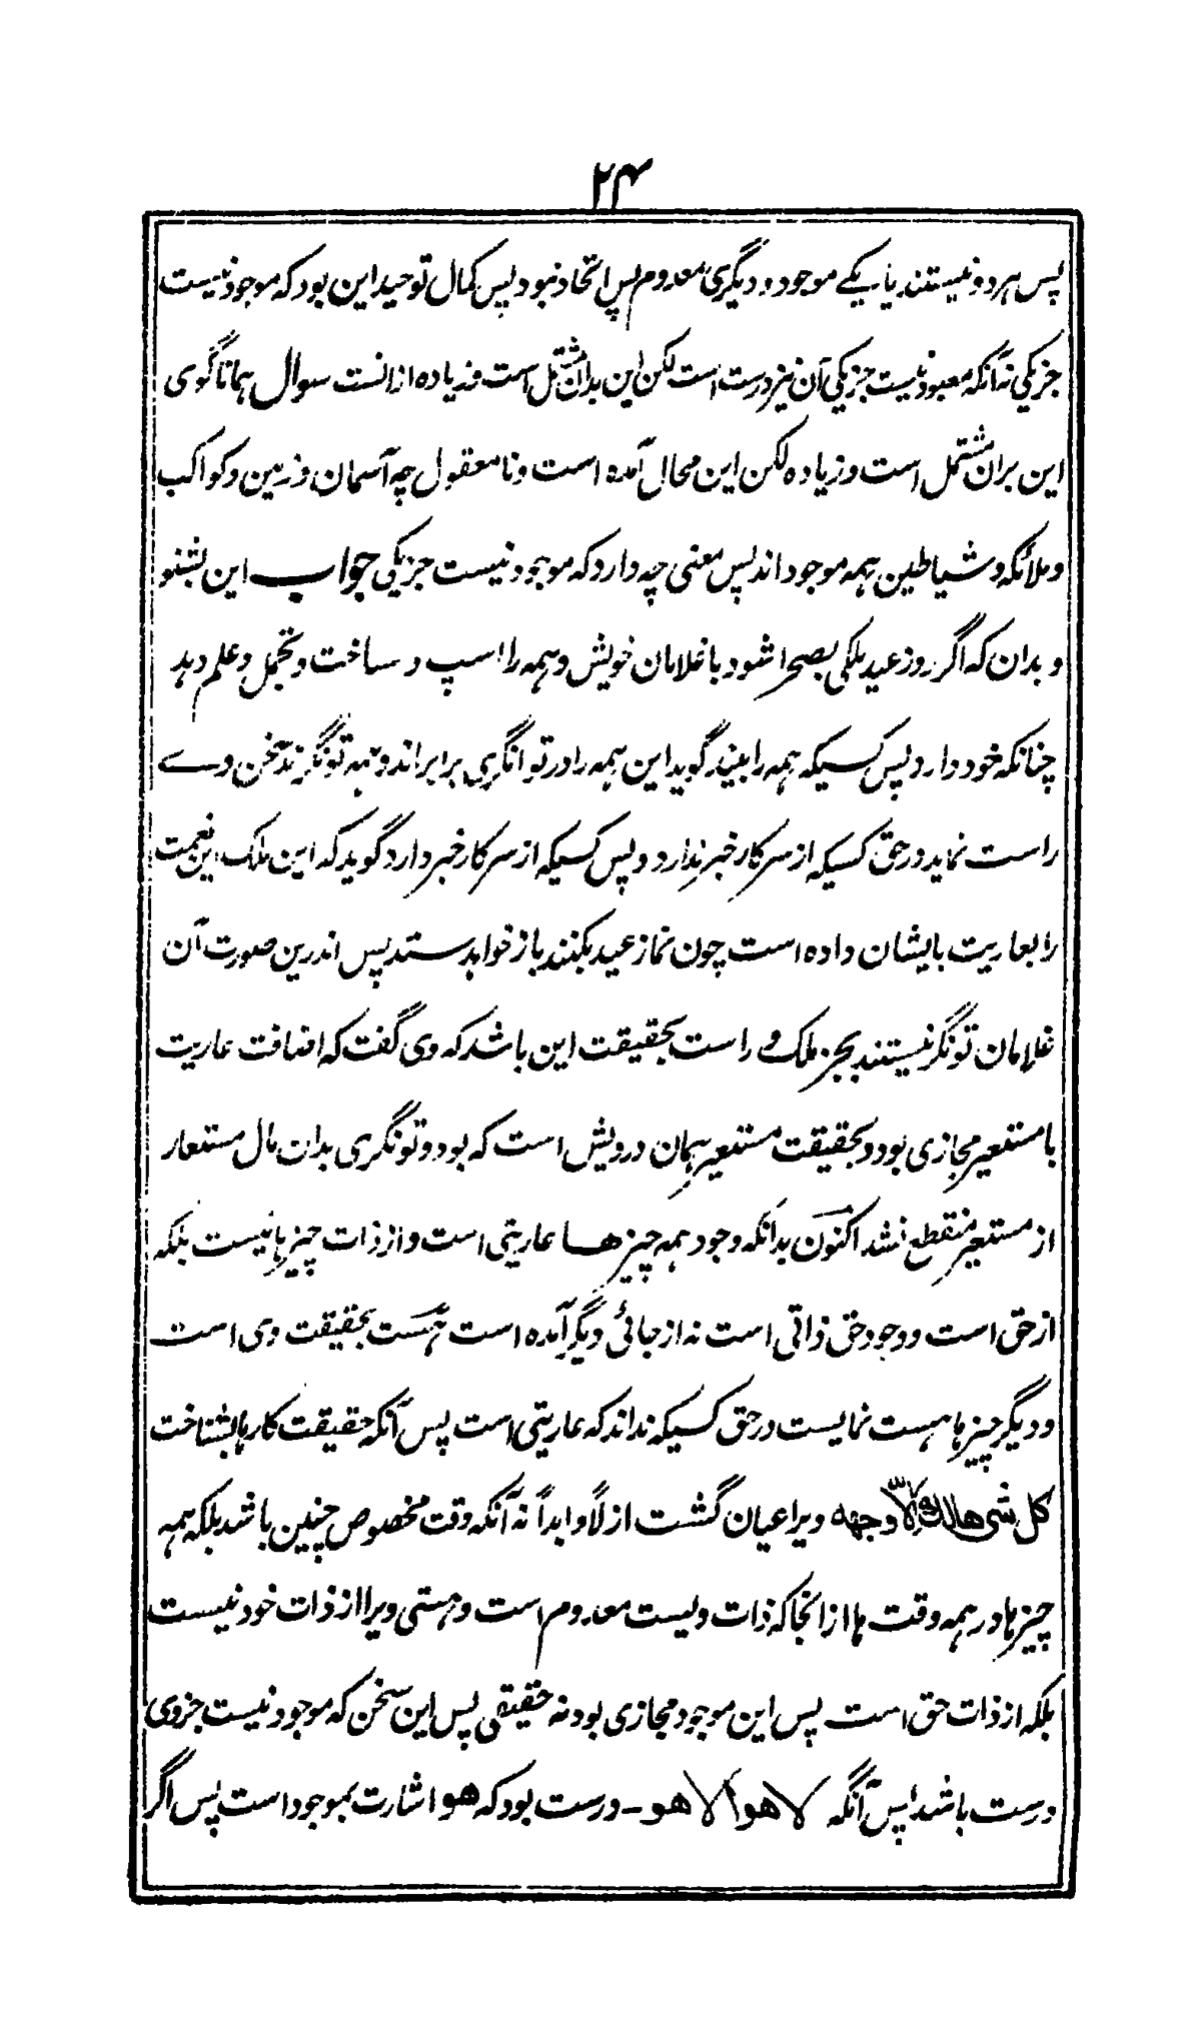 ۲۴
پس هر دو نیستند یا یکے موجود و دیگری معدوم پس اتحاد نبود پس کمال توحید این بود که موجود نیست
جز یکی نه آنکه معبود نیست جز یکی آن نیز درست است لکن این بدان مشتمل است و زیاده از انست سوال همانا گوی
این بران مشتمل است و زیاده لکن این محال آمده است و نا معقول چه آسمان و زمین و کواکب
و ملائکه و شیاطین همه موجود اند پس معنی چه دارد که موجود نیست جز یکی جواب این بشنو
و بدان که اگر روز عید ملکی بصحرا شود با غلامان خویش و همه را اسپ و ساخت و تجمل و علم دهد
چنانکه خود دارد پس کسیکه همه را بیند گوید این همه را در توانگری برابر اند و همه تونگرند سخن وے
راست نماید در حق کسیکه از سر کار خبر ندارد و پس کسیکه از سر کار خبر دارد گوید که این ملک این نعمت
را بعاریت بایشان داده است چون نماز عید بکنند باز خواهد ستد پس اندرین صورت آن
غلامان تونگر نیستند بجز ملک و راست بحقیقت این باشد که وی گفت که اضافت عاریت
با مستعیر مجازی بود و بحقیقت مستعیر همان درویش است که بود و تونگری بدان مال مستعار
از مستعیر منقطع نشد اکنون بدآنکه وجود همه چیز ها عاریتی است و از ذات چیز ها نیست بلکه
از حق است و وجود حق ذاتی است نه از جائی دیگر آمده است هست بحقیقت وی است
و دیگر چیز ها هست نمایست در حق کسیکه نداند که عاریتی است پس آنکه حقیقت کار ها بشناخت
کل شی هالك الّا وجهه ویرا عیان گشت ازلاً و ابداً نه آنکه وقت مخصوص چنین باشد بلکه همه
چیز ها در همه وقت ها از انجا که ذات ویست معدوم است و هستی ویرا از ذات خود نیست
بلکه از ذات حق است پس این موجود مجازی بود نه حقیقی پس این سخن که موجود نیست جز وی
درست باشد پس آنگه لا هو الا هو - درست بود که هو اشارت بموجود است پس اگر